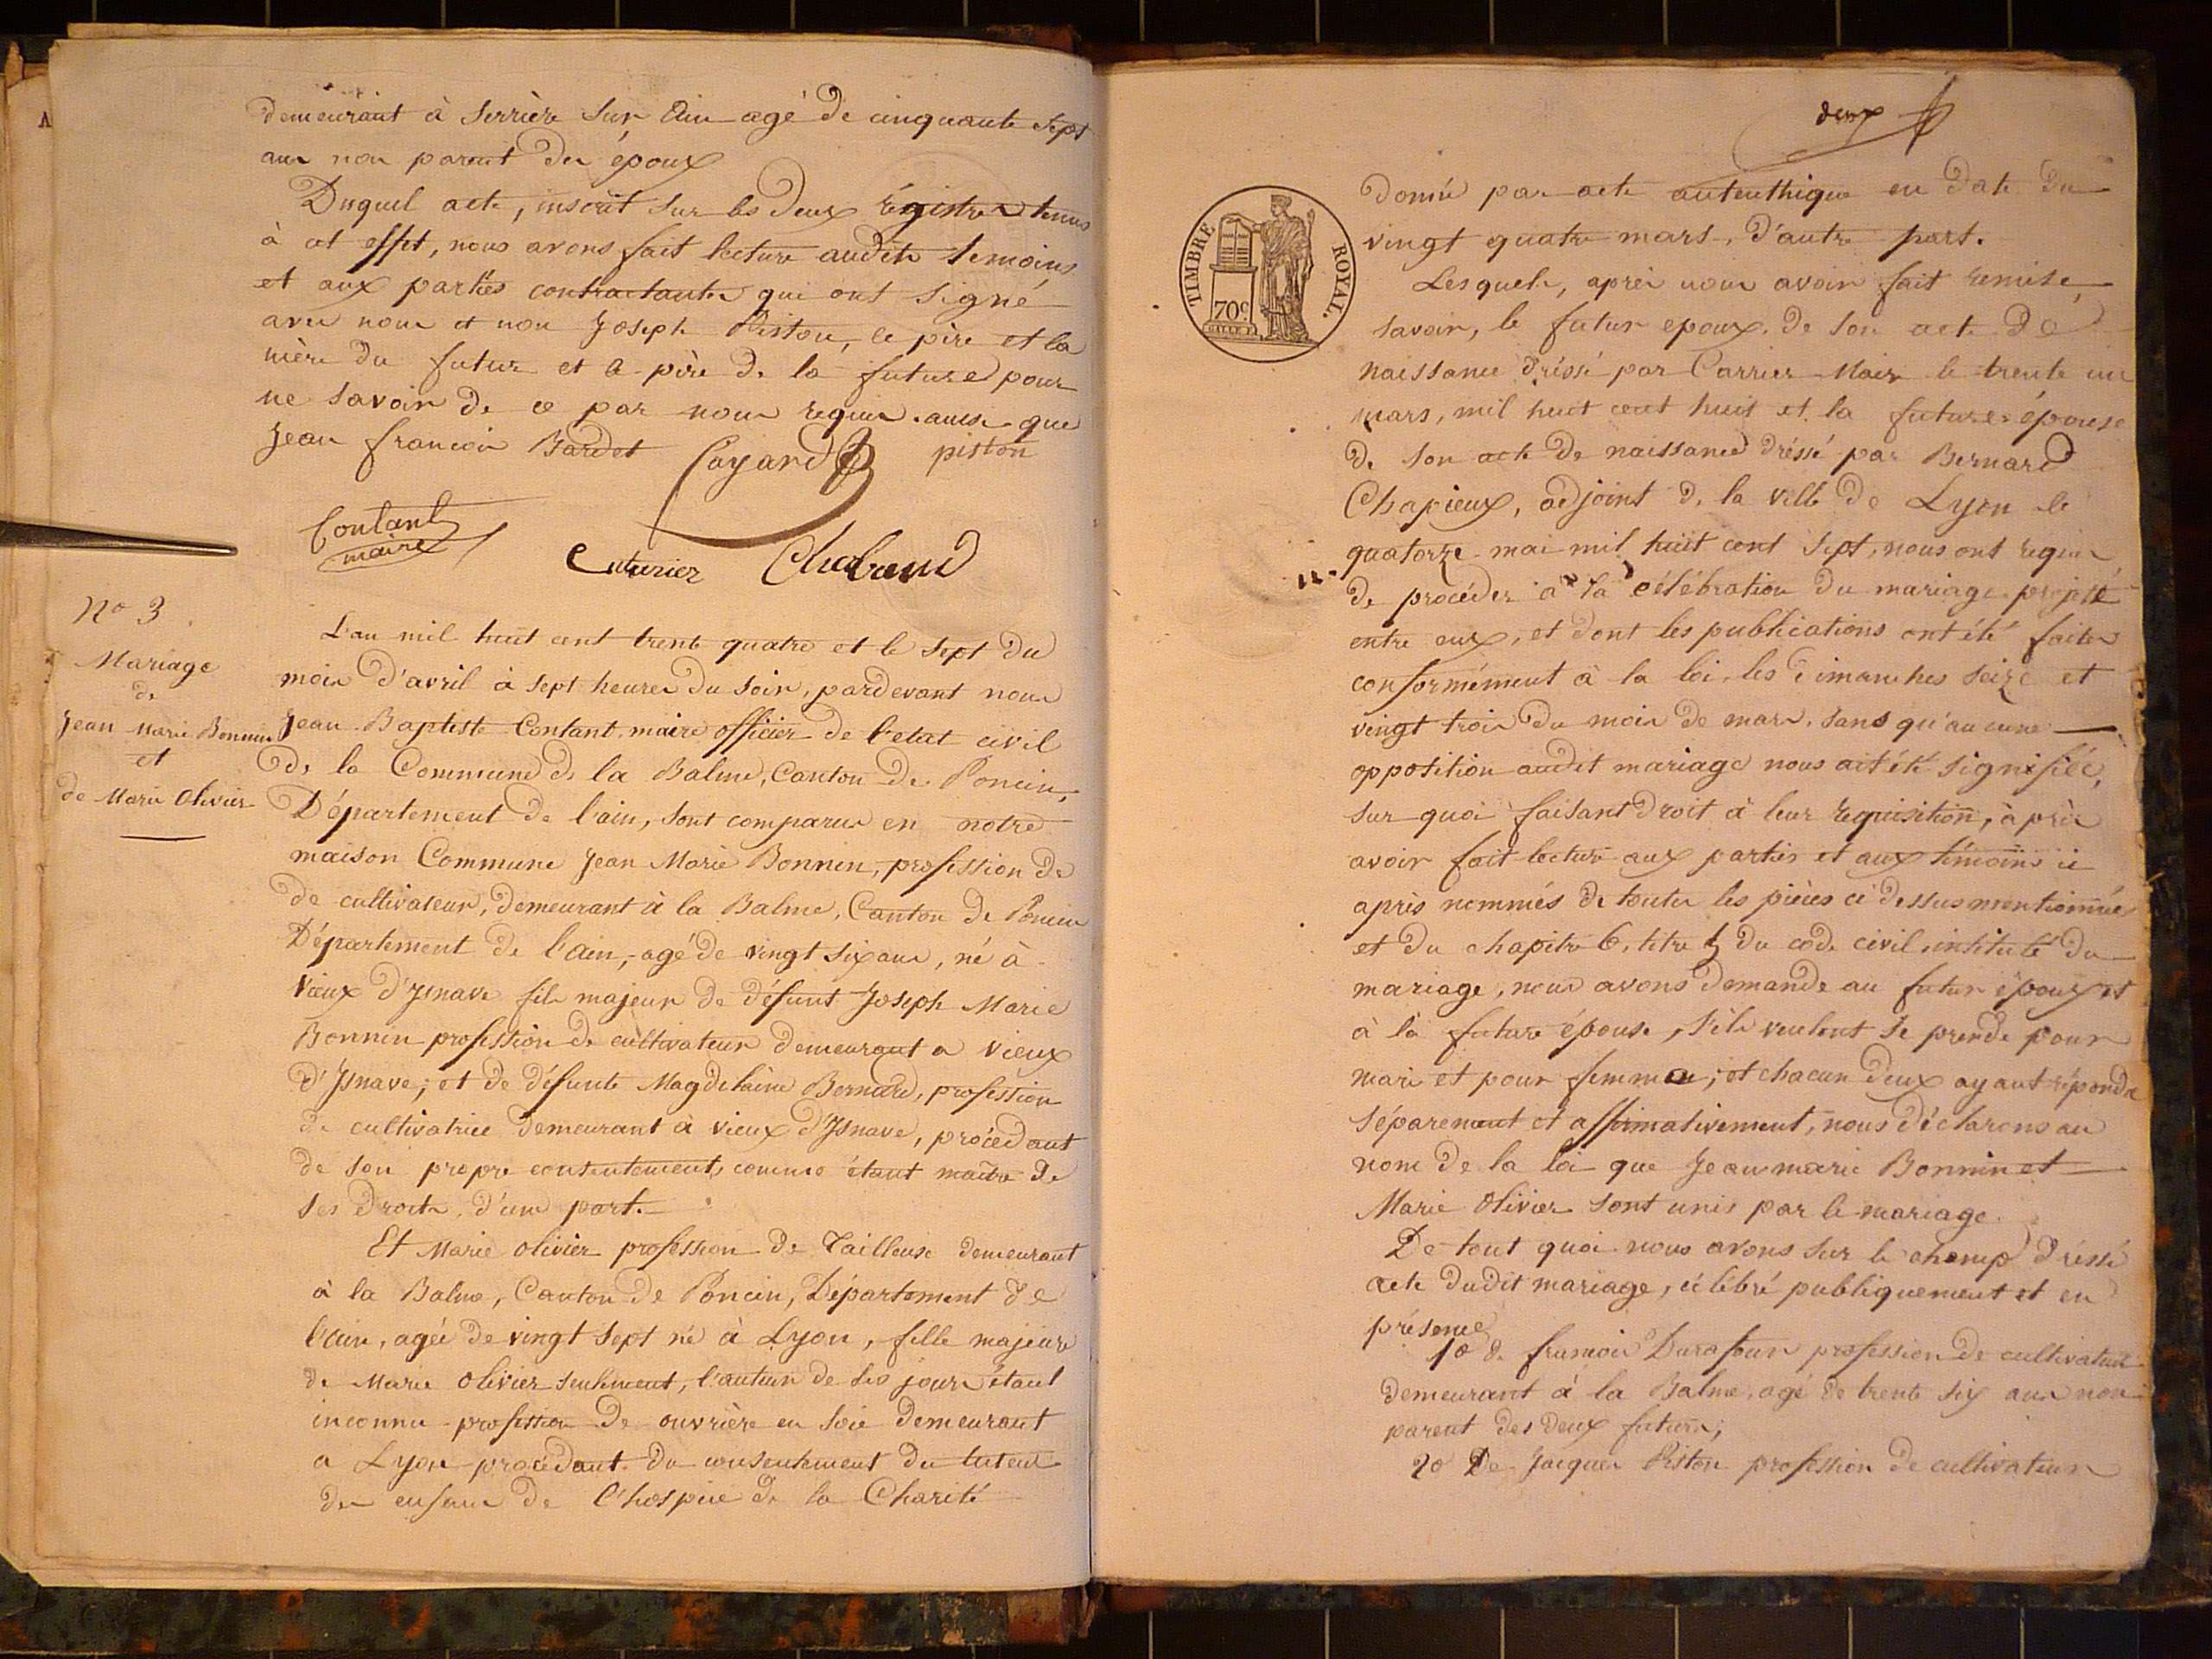 demeurant à Serrière sur Ain agé de cinquante sept
ans non parent des époux
Duquel acte, inscrit sur les deux régistres tenus
à cet effet, nous avons fait lecture audits temoins
et aux parties contractantes qui ont signé
avec nous et non Joseph Piston, le père et la
mère du futur et le père de la future pour
ne savoir de ce par nous requis aussi que
Jean francois Bardet Cayard piston
Contant
maire
Cuturier Chabaud
No 3
Mariage
de
Jean Marie Bonnin
et
de Marie Olivier
L'an mil huit cent trente quatre et le sept du
mois d'avril à sept heures du soir, pardevant nous
Jean Baptiste Contant, maire officier de l'etat civil
de la Commune de la Balme, Canton de Poncin,
Département de l'ain, sont comparus en notre
maison Commune Jean Marie Bonnin, profession de
de cultivateur, demeurant à la Balme, Canton de Poncin
Département de l'ain, agé de vingt six ans, né à
Vieux d'Isnave fils majeur de défunt Joseph Marie
Bonnin profession de cultivateur demeurant a vieux
d'Isnave; et de défunte Magdelaine Bernard, profession
de cultivatrice demeurant à vieux d'Isnave, procédant
de son propre consentement, comme étant maître de
ses droits, d'une part.
Et Marie olivier profession de Tailleuse demeurant
à la Balme, Canton de Poncin, Département de
l'ain, agée de vingt sept né à Lyon, fille majeure
de Marie Olivier seulement, l'auteur de ses jours étant
inconnu profession de ouvrière en soie demeurant
a Lyon procédant du consentement du tuteur
des enfans de l'hospice de la Charité
deux
TIMBRE ROYAL.
70c.
donné par acte autenthique en date du
vingt quatre mars, d'autre part.
Lesquels, après nous avoir fait remise,
savoir, le futur epoux, de son acte de
naissance dréssé par Carrier Maire le trente un
mars, mil huit cent huit et la future épouse
de son acte de naissance dréssé par Bernard
Chapieux, adjoint de la ville de Lyon le
quatorze mai mil huit cent sept, nous ont requis
de procéder à la célébration du mariage projeté
entre eux, et dont les publications ont été faites
conformément à la loi, les dimanches seize et
vingt trois du mois de mars, sans qu'aucune
opposition audit mariage nous ait été signifiée,
sur quoi faisant droit à leur requisition, après
avoir fait lecture aux parties et aux témoins ci
après nommés de toutes les pièces ci dessus mentionnées
et du chapitre 6, titre 5 du code civil, intitulé du
mariage, nous avons demandé au futur époux et
à la future épouse, s'ils veulent se prende pour
mari et pour femme; et chacun deux ayant répondu
séparement et affirmativement, nous déclarons au
nom de la loi que Jean marie Bonnin et
Marie Olivier sont unis par le mariage.
De tout quoi nous avons sur le champ dréssé
acte dudit mariage, célébré publiquement et en
présence
1o de francois Durafour profession de cultivateur
demeurant à la Balme, agé de trente six ans non
parent des deux futurs;
2o De Jacques Piston profession de cultivateur